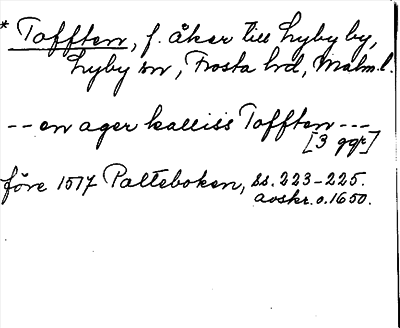 * Tofften, f. åker till Lyby by,
Lyby sn, Frosta hd, Malm.l.
-- en ager kalliss Tofften ---
[3 ggr]
före 1517 Palteboken, ss. 223-225.
avskr. o. 1650.